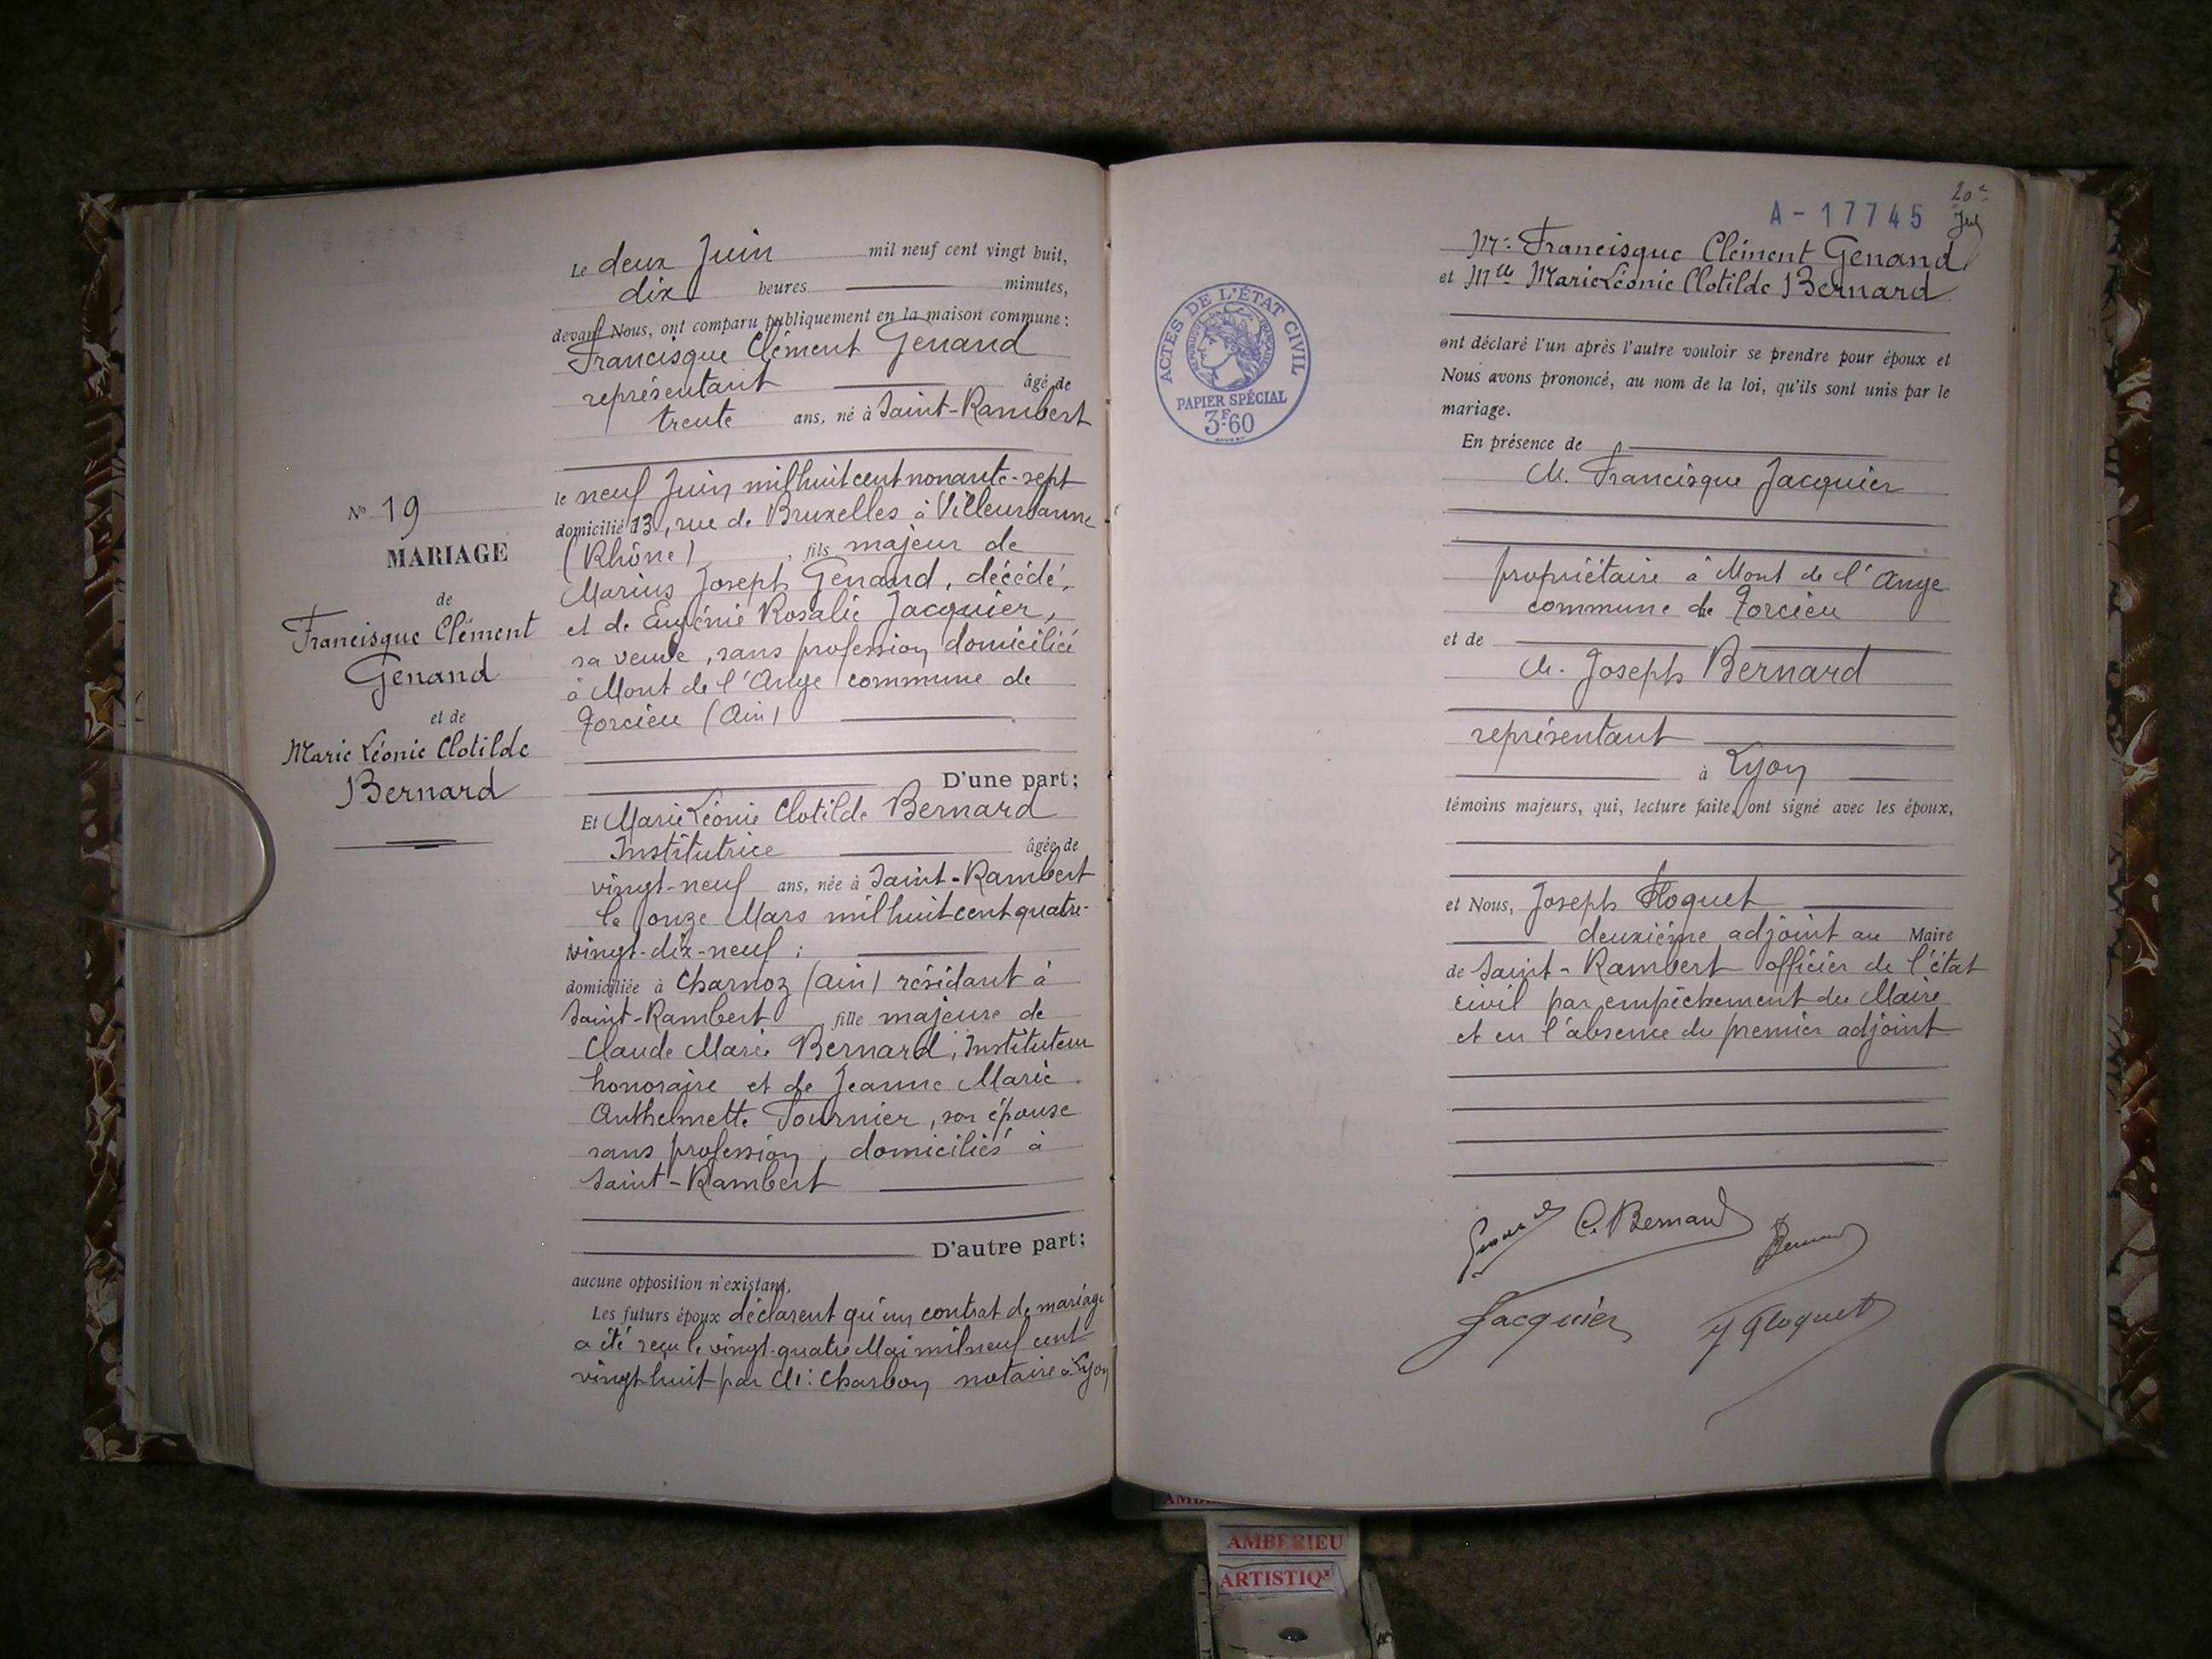 Le deux Juin mil neuf cent vingt huit,
dix heures minutes,
devant Nous, ont comparu publiquement en la maison commune :
Francisque Clément Genand
représentant âgé de
trente ans, né à Saint-Rambert
le neuf Juin mil huit cent nonante-sept
domicilié 13, rue de Bruxelles à Villeurbanne
(Rhône), fils majeur de
Marius Joseph Genand, décédé,
et de Eugénie Rosalie Jacquier,
sa veuve, sans profession domiciliée
à Mont de l'Ange commune de
Torcieu (Ain)
D'une part;
Et Marie Léonie Clotilde Bernard
Institutrice âgée de
vingt-neuf ans, née à Saint-Rambert
le onze Mars mil huit cent quatre-
vingt-dix-neuf ;
domiciliée à Charnoz (Ain) résidant à
Saint-Rambert, fille majeure de
Claude Marie Bernard, Instituteur
honoraire et de Jeanne Marie
Anthelmette Tournier, son épouse
sans profession, domiciliés à
Saint-Rambert
D'autre part;
aucune opposition n'existant.
Les futurs époux déclarent qu'un contrat de mariage
a été reçu le vingt-quatre Mai mil neuf cent
vingt huit par Me: Charbon notaire à Lyon
N° 19
MARIAGE
de
Francisque Clément
Genand
et de
Marie Léonie Clotilde
Bernard
A-17745
20e
ACTES DE L'ÉTAT CIVIL
RÉPUBLIQUE FRANÇAISE
PAPIER SPÉCIAL
3F.60
Mr: Francisque Clément Genand
et Mlle Marie Léonie Clotilde Bernard
ont déclaré l'un après l'autre vouloir se prendre pour époux et
Nous avons prononcé, au nom de la loi, qu'ils sont unis par le
mariage.
En présence de
M. Francisque Jacquier
propriétaire à Mont de l'Ange
commune de Torcieu
et de
M. Joseph Bernard
représentant
à Lyon
témoins majeurs, qui, lecture faite, ont signé avec les époux,
et Nous, Joseph
deuxième adjoint au Maire
de Saint-Rambert officier de l'état
civil par empêchement du Maire
et en l'absence du premier adjoint
Genand C. Bernard Bernard
Jacquier
AMBERIEU
ARTISTIQ